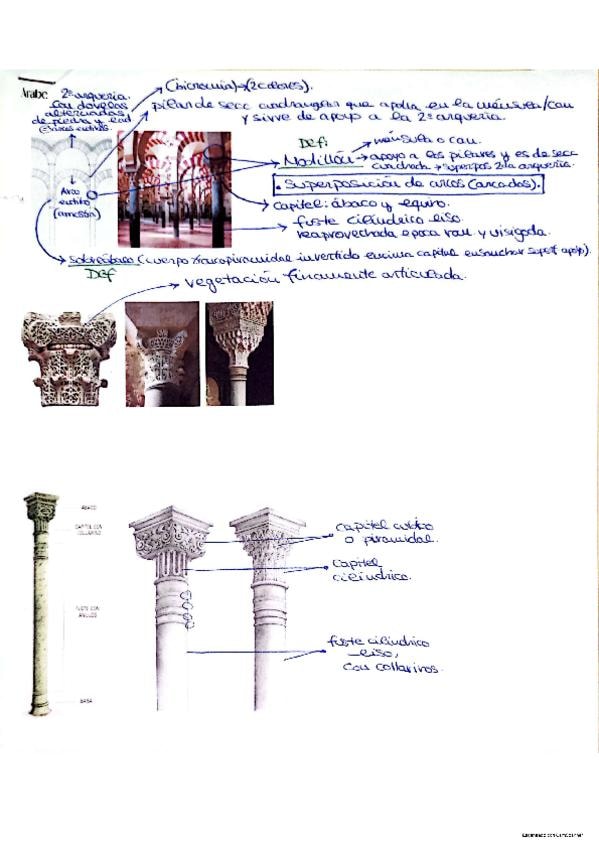 Árabe
2ª arquería.
con dovelas
alternadas
de piedra y lad
(bicromía)→(2 colores).
pilar de secc cuadrangular que apoya en la ménsula/can
y sirve de apoyo a la 2ª arquería.
Def:
ménsula o can.
Modillón → apoyo a los pilares y es de secc
cuadrada → superpos 2 la arquería.
• Superposición de arcos (arcadas).
Arco
(armesón)
capitel: ábaco y equino.
fuste cilíndrico liso
reaprovechada época rom. y visigoda.
sobreábaco (cuerpo troncopiramidal invertido encima capitel ensanchar superf apoyo).
Def
vegetación finamente articulada.
ÁBACO
CAPITEL CON
COLLARINO
FUSTE CON
ANILLOS
BASA
capitel cúbico
o piramidal.
capitel
cilíndrico.
fuste cilíndrico
liso,
con collarinos.